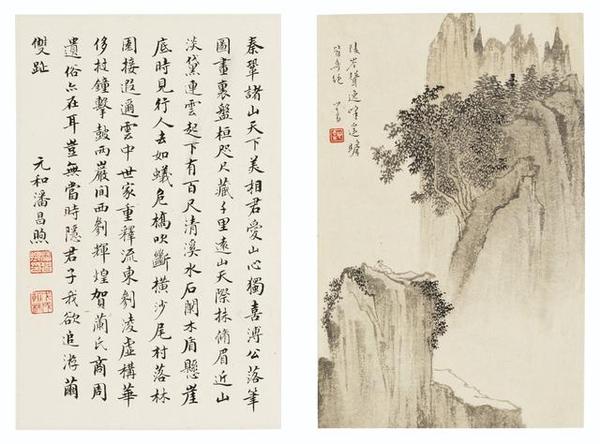 秦鞏諸山天下美相君愛山心獨喜溥公落筆
圖畫裏盤桓咫尺藏千里遠山天際抹脩眉近山
淡黛連雲起下有百尺清溪水石闌木盾懸崖
底時見行人去如蟻危橋吹斷橫沙尾村落林
園接遐邇雲中世家重釋流東刹凌虛構華
侈杖鐘擊鼓兩巖間西刹輝煌賀蘭氏商周
遺俗亦在耳豈無當時隱君子我欲追游繭
雙趾
元和潘昌煦
陵岑聳逸峰遙瞻
皆奇絕 心畬